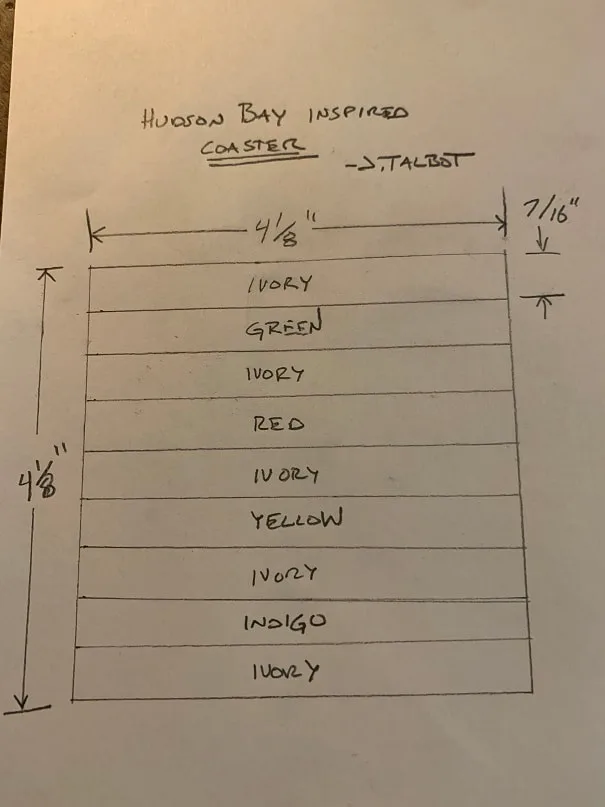 HUDSON BAY INSPIRED
COASTER
->J.TALBOT
7/16"
4 1/8"
IVORY
GREEN
IVORY
RED
IVORY
4 1/8"
YELLOW
IVORY
INDIGO
IVORY